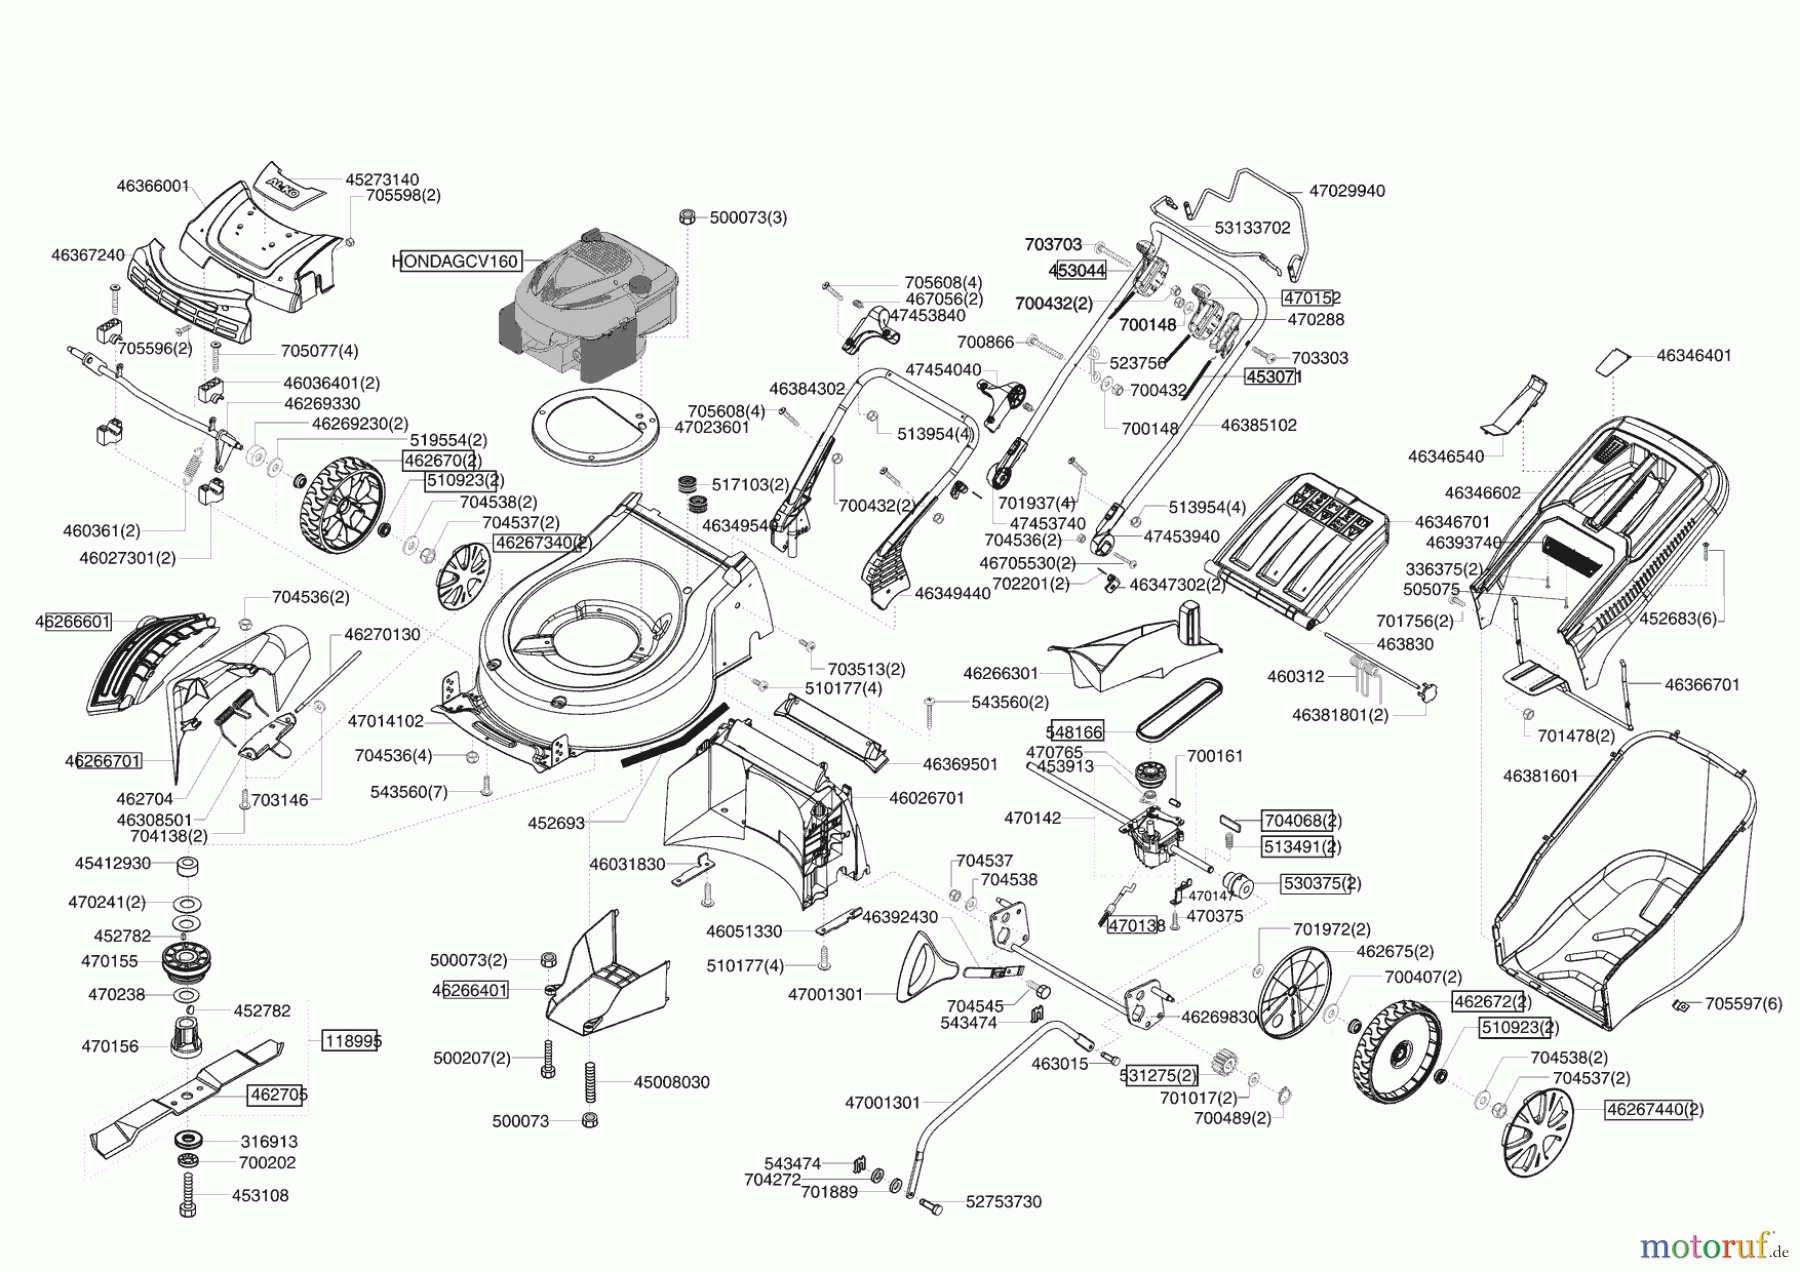 46366001
AL-KO
45273140
705598(2)
46367240
705596(2)
705077(4)
46036401(2)
46269330
46269230(2)
519554(2)
462670(2)
510923(2)
704538(2)
704537(2)
46267340(2)
460361(2)
46027301(2)
HONDAGCV160
500073(3)
47023601
517103(2)
46349540
705608(4)
467056(2)
47453840
46384302
705608(4)
513954(4)
700432(2)
46349440
47029940
53133702
703703
453044
700432(2)
700148
470152
470288
700866
523756
703303
453071
700432
47454040
700148
46385102
701937(4)
47453740
704536(2)
513954(4)
47453940
46705530(2)
702201(2)
46347302(2)
46346401
46346540
46346602
46346701
46393740
336375(2)
505075
701756(2)
452683(6)
463830
460312
46381801(2)
46366701
701478(2)
46381601
705597(6)
46266601
704536(2)
46270130
46266701
462704
46308501
704138(2)
703146
47014102
704536(4)
543560(7)
703513(2)
510177(4)
46266301
543560(2)
46369501
46026701
452693
46031830
46051330
510177(4)
548166
470765
453913
700161
470142
704068(2)
513491(2)
530375(2)
470147
470375
470138
45412930
470241(2)
452782
470155
470238
452782
470156
118995
462705
316913
700202
453108
500073(2)
46266401
500207(2)
45008030
500073
704537
704538
46392430
47001301
704545
543474
46269830
463015
531275(2)
701017(2)
700489(2)
47001301
543474
704272
701889
52753730
701972(2)
462675(2)
700407(2)
462672(2)
510923(2)
704538(2)
704537(2)
46267440(2)
motoruf.de